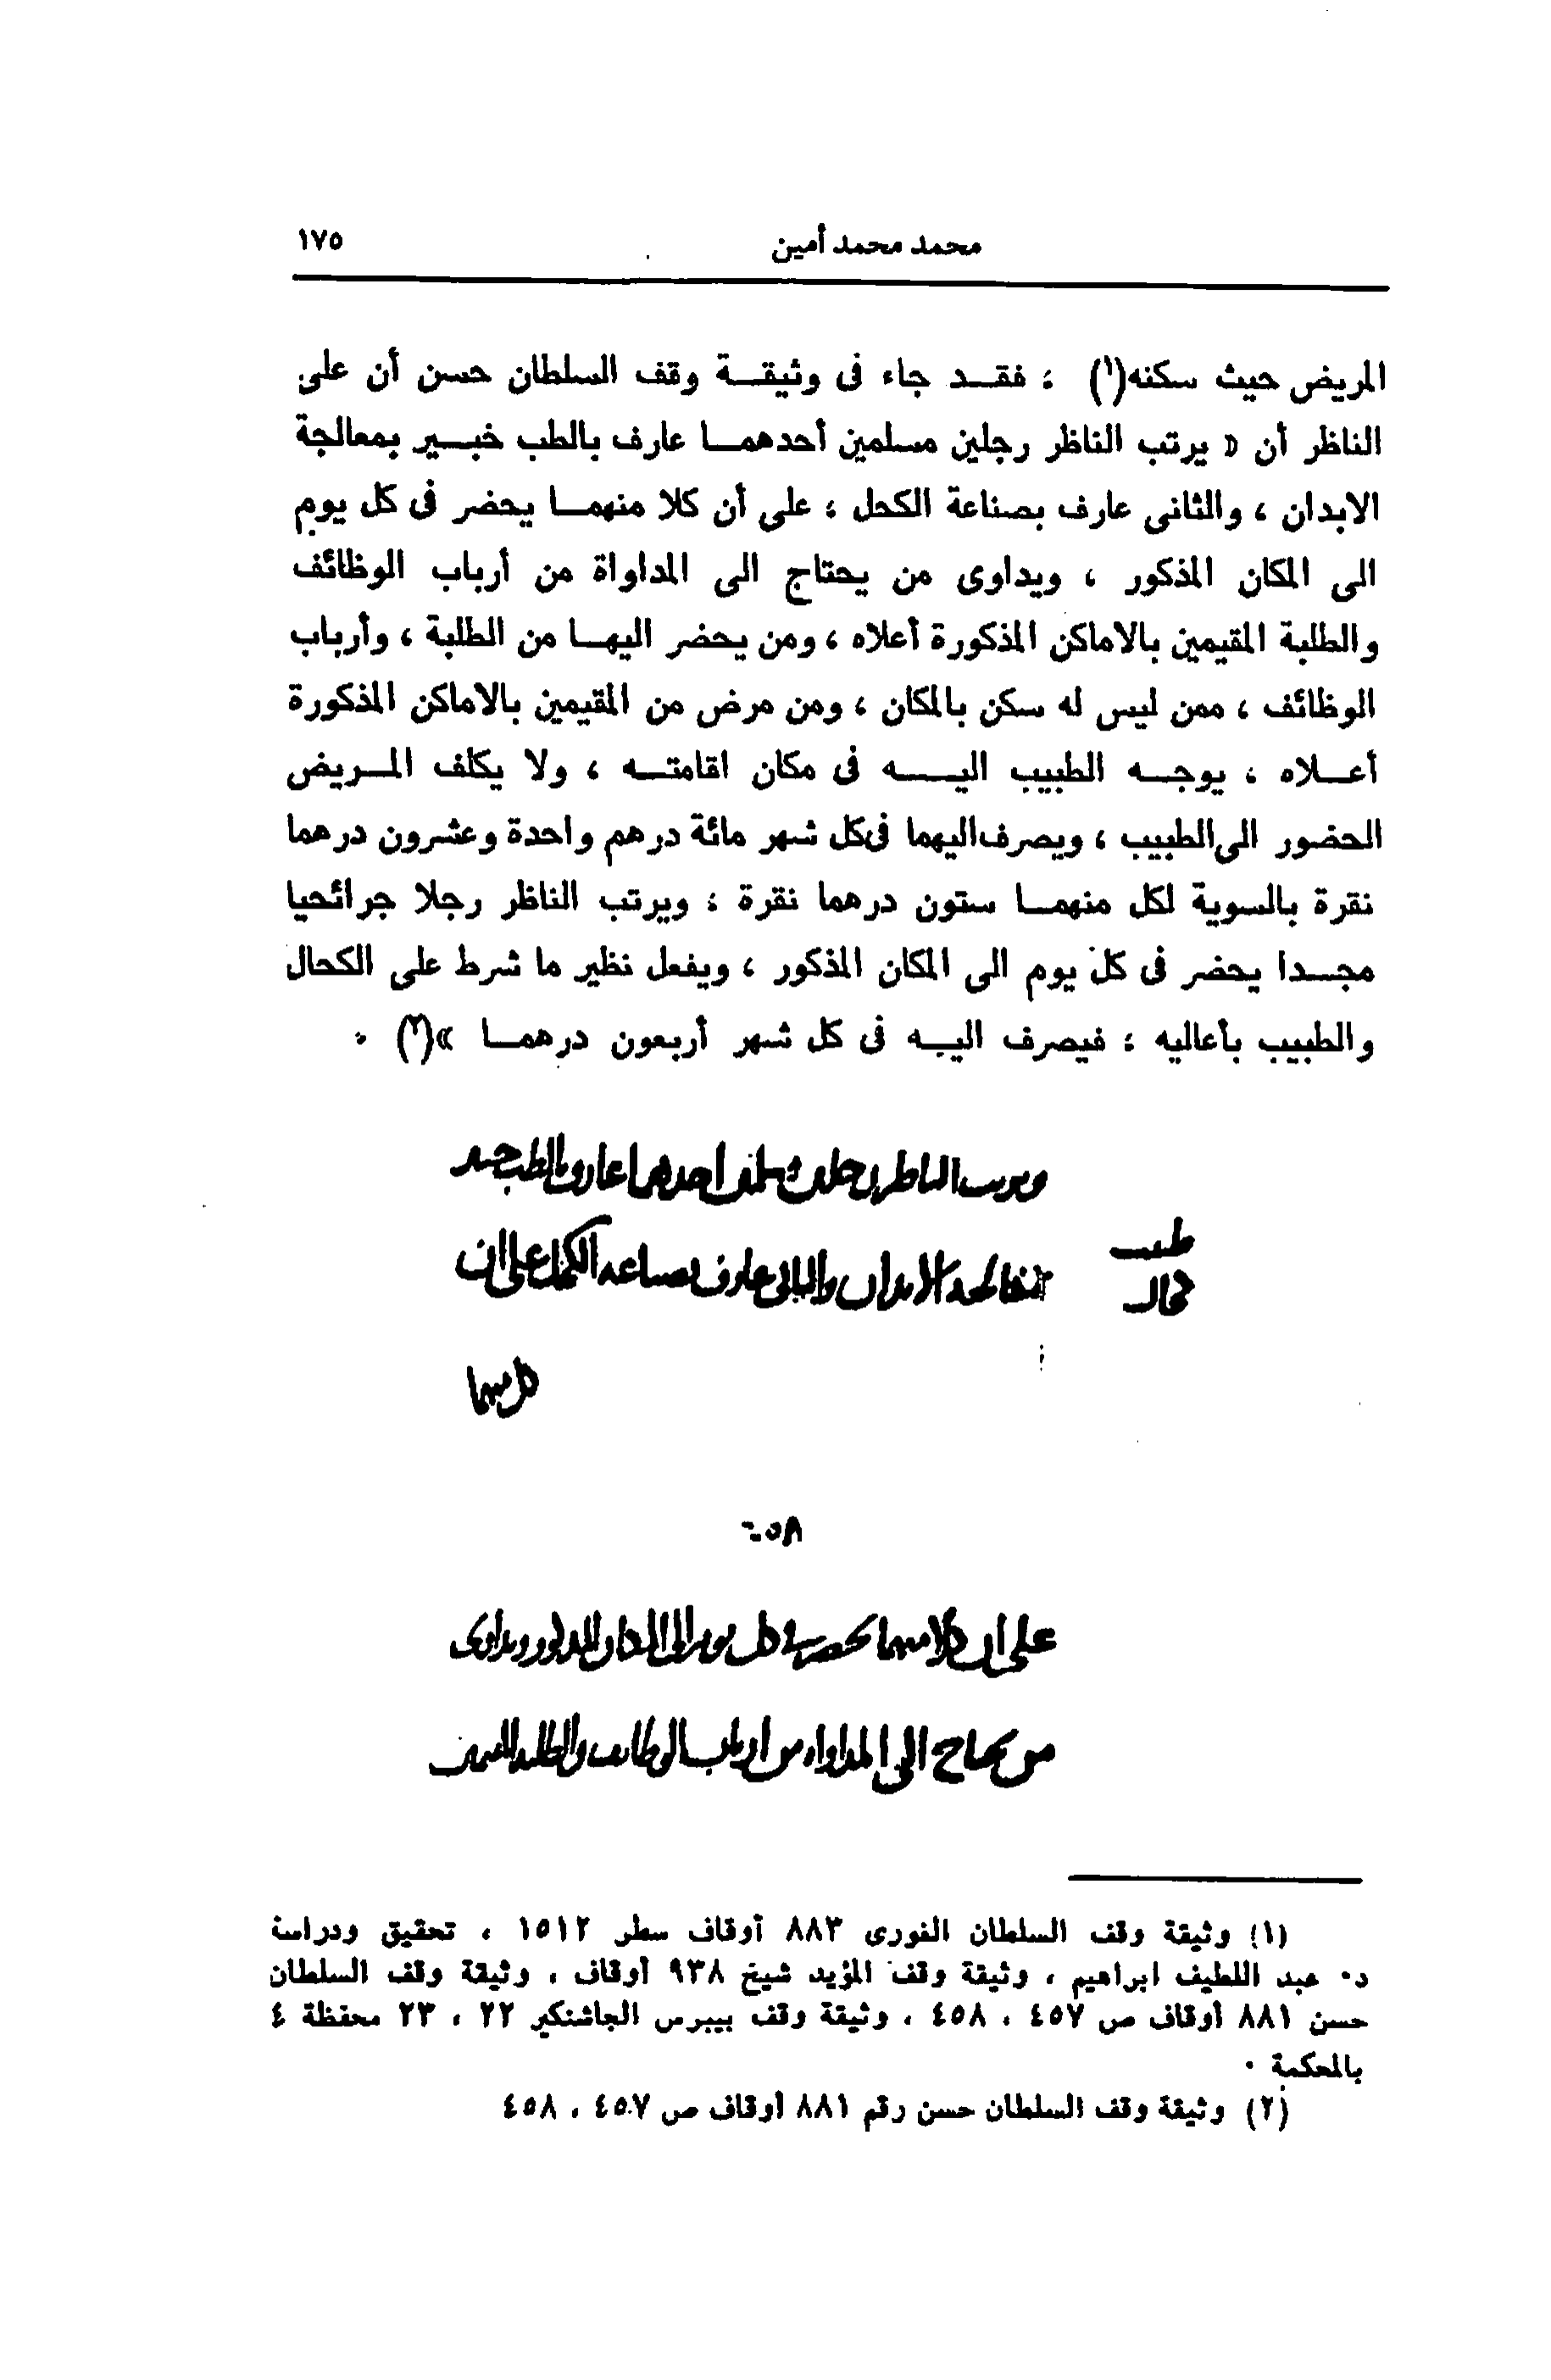 محمد محمد أمين ١٧٥
المريض حيث سكنه(١) ؛ فقـــد جاء فى وثيقـــة وقف السلطان حسن أن على
الناظر أن « يرتب الناظر رجلين مسلمين أحدهمـــا عارف بالطب خبـــير بمعالجة
الابدان ، والثانى عارف بصناعة الكحل ؛ على أن كلا منهمـــا يحضر فى كل يوم
الى المكان المذكور ، ويداوى من يحتاج الى المداواة من أرباب الوظائف
والطلبة المقيمين بالاماكن المذكورة أعلاه ، ومن يحضر اليهـــا من الطلبة ، وأرباب
الوظائف ، ممن ليس له سكن بالمكان ، ومن مرض من المقيمين بالاماكن المذكورة
أعـــلاه ، يوجـــه الطبيب اليـــــه فى مكان اقامتـــه ، ولا يكلف المـــريض
الحضور الى الطبيب ، ويصرف اليهما فى كل شهر مائة درهم واحدة وعشرون درهما
نقرة بالسوية لكل منهمـــا ستون درهما نقرة ؛ ويرتب الناظر رجلا جرائحيا
مجـــدا يحضر فى كل يوم الى المكان المذكور ، ويفعل نظير ما شرط على الكحال
والطبيب بأعاليه ؛ فيصرف اليـــه فى كل شهر أربعون درهمـــا »(٢) ٠
ويرتب الناظر رجلين مسلمين احدهما عارف بالطب خبير
طبيب
بمعالجه الابدان والثانى عارف بصناعه الكحل على ان
كحال
كلا منهما
٤٥٨
على ان كلا منهما يحضر فى كل يوم الى المكان المذكور ويداوى
من يحتاج الى المداواه من ارباب الوظايف والطلبه المقيمين
(١) وثيقة وقف السلطان الغورى ٨٨٣ أوقاف سطر ١٥١٢ ، تحقيق ودراسة
د٠ عبد اللطيف ابراهيم ، وثيقة وقف المؤيد شيخ ٩٣٨ أوقاف ، وثيقة وقف السلطان
حسن ٨٨١ أوقاف ص ٤٥٧ ، ٤٥٨ ، وثيقة وقف بيبرس الجاشنكير ٢٢ ، ٢٣ محفظة ٤
بالمحكمة ٠
(٢) وثيقة وقف السلطان حسن رقم ٨٨١ أوقاف ص ٤٥٧ ، ٤٥٨